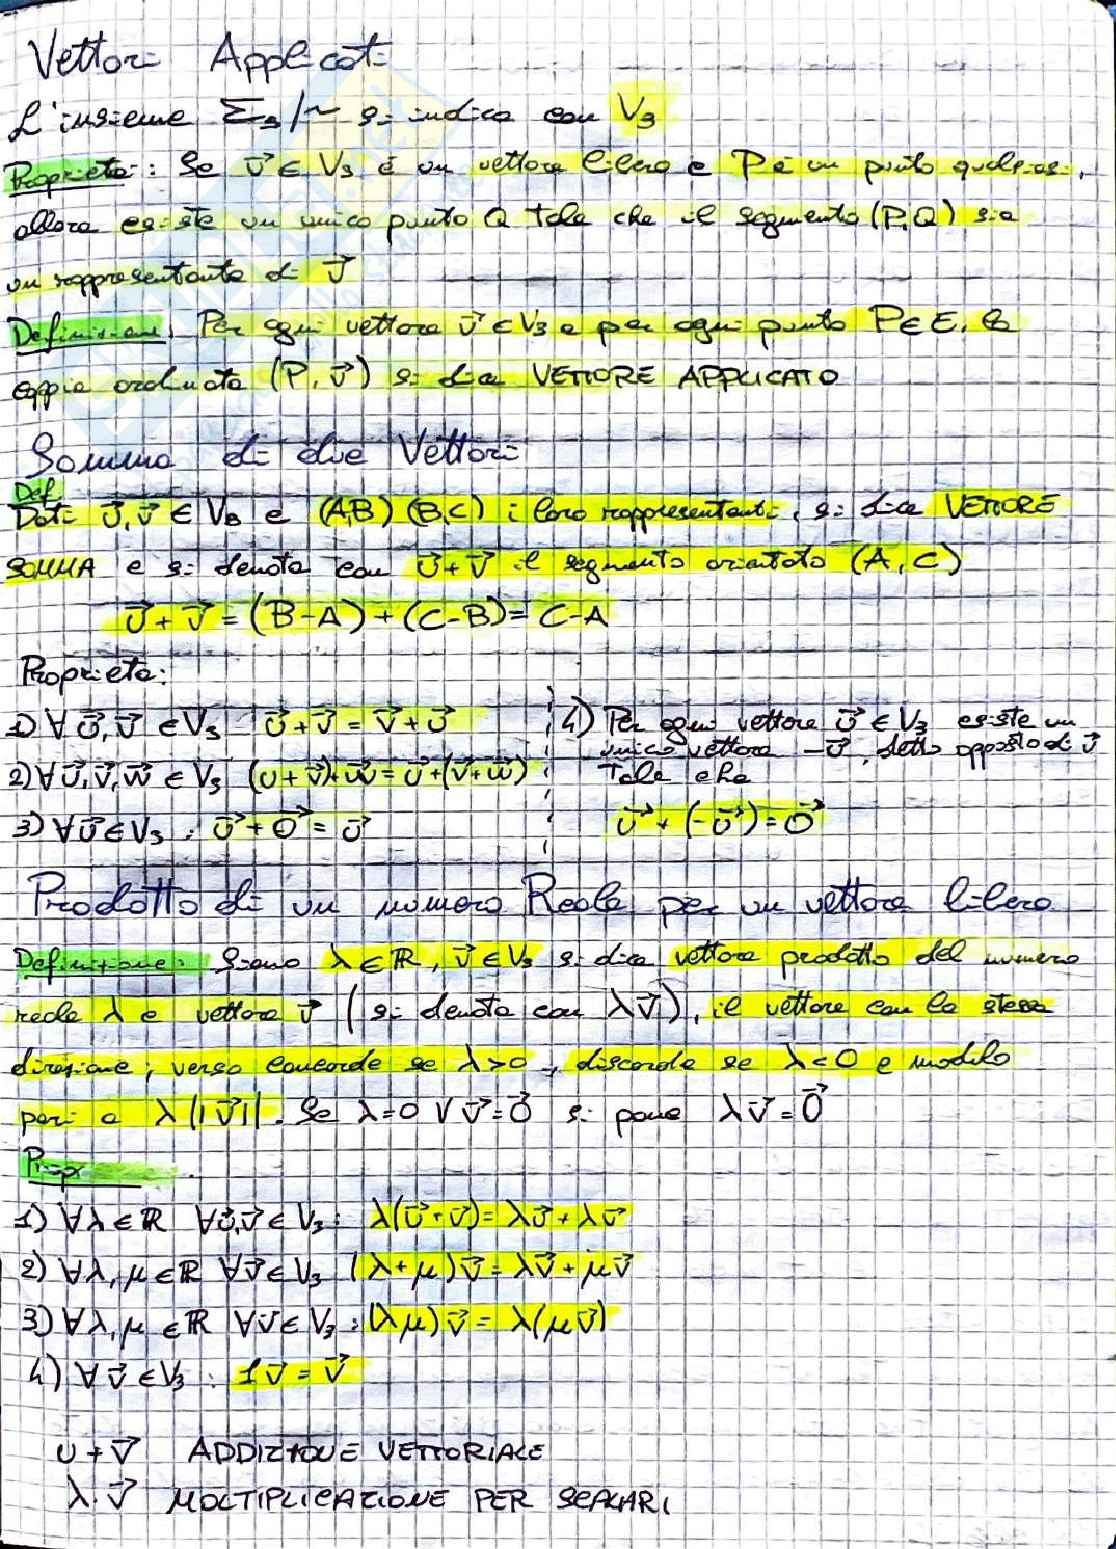 Vettori Applicati
L'insieme Σ₃/~ si indica con V₃
Proprietà: Se v⃗ ∈ V₃ è un vettore libero e P è un punto qualsiasi,
allora esiste un unico punto Q tale che il segmento (P,Q) sia
un rappresentante di v⃗
Definizione. Per ogni vettore v⃗ ∈ V₃ e per ogni punto P ∈ E, la
coppia ordinata (P, v⃗) si dice VETTORE APPLICATO
Somma di due Vettori
Def
Dati u⃗, v⃗ ∈ V₃ e (A,B) (B,C) i loro rappresentanti, si dice VETTORE
SOMMA e si denota con u⃗ + v⃗ il segmento orientato (A, C)
u⃗ + v⃗ = (B-A) + (C-B) = C-A
Proprietà:
1) ∀ u⃗, v⃗ ∈ V₃ u⃗ + v⃗ = v⃗ + u⃗
2) ∀ u⃗, v⃗, w⃗ ∈ V₃ (u + v⃗) + w⃗ = u⃗ + (v⃗ + w⃗)
3) ∀ u⃗ ∈ V₃ : u⃗ + 0⃗ = u⃗
4) Per ogni vettore u⃗ ∈ V₃ esiste un
unico vettore -u⃗, detto opposto di u⃗
Tale che
u⃗ + (-u⃗) = 0⃗
Prodotto di un numero Reale per un vettore libero
Definizione: Siano λ ∈ ℝ, v⃗ ∈ V₃ si dice vettore prodotto del numero
reale λ e vettore v⃗ (si denota con λv⃗), il vettore con la stessa
direzione, verso concorde se λ>0, discorde se λ<0 e modulo
pari a λ||v⃗||. Se λ=0 ∨ v⃗=0⃗ si pone λv⃗=0⃗
Prop
1) ∀λ ∈ ℝ ∀u⃗,v⃗ ∈ V₃: λ(u⃗+v⃗) = λu⃗ + λv⃗
2) ∀λ, μ ∈ ℝ ∀v⃗ ∈ V₃ (λ+μ)v⃗ = λv⃗ + μv⃗
3) ∀λ, μ ∈ ℝ ∀v⃗ ∈ V₃ : (λμ)v⃗ = λ(μv⃗)
4) ∀ v⃗ ∈ V₃ : 1v⃗ = v⃗
u + v⃗ ADDIZIONE VETTORIALE
λ·v⃗ MOLTIPLICAZIONE PER SCALARI